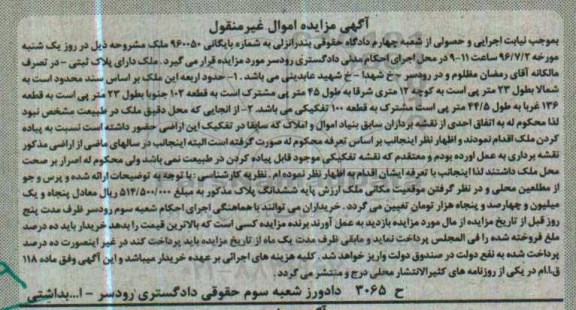 آگهی مزایده اموال غیرمنقول
بموجب نیابت اجرایی و حصولی از شعبه چهارم دادگاه حقوقی بندرانزلی به شماره بایگانی ۹۶۰۰۵۰ ملک مشروحه ذیل در روز یک شنبه
مورخه ۹۶/۷/۲ ساعت ۱۱-۹ در محل اجرای احکام مدنی دادگستری رودسر مورد مزایده قرار می گیرد. ملک دارای پلاک ثبتی - در تصرف
مالکانه آقای رمضان مظلوم و در رودسر - خ شهدا - خ شهید عابدینی می باشد. ۱- حدود اربعه این ملک بر اساس سند محدود است به
شمالا بطول ۲۳ متر پی است به کوچه ۱۲ متری شرقا به طول ۴۵ متر پی مشترک است به قطعه ۱۰۲ جنوبا بطول ۲۳ متر پی است به قطعه
۱۳۶ غربا به طول ۴۴/۵ متر پی است مشترک به قطعه ۱۰۰ تفکیکی می باشد. ۲- از انجایی که محل دقیق ملک در طبیعت مشخص نبود
لذا محکوم له به اتفاق احدی از نقشه برداران سابق بنیاد اموال و املاک که سابقا در تفکیک این اراضی حضور داشته است نسبت به پیاده
کردن ملک اقدام نمودند و اظهار نظر اینجانب بر اساس تعرفه محکوم له صورت گرفته است البته اینجانب در سالهای ماضی از اراضی مذکور
نقشه برداری به عمل اورده بودم و معتقدم که نقشه تفکیکی موجود قابل پیاده کردن در طبیعت نمی باشد ولی محکوم له اصرار بر صحت
محل ملک داشتند لذا اینجانب با تعرفه ایشان اقدام به اظهار نظر نموده ام. نظریه کارشناسی : با توجه به توضیحات ارائه شده و پرس و جو
از مطلعین محلی و در نظر گرفتن موقعیت مکانی ملک ارزش پایه ششدانگ پلاک مذکور به مبلغ ۵۱۴/۵۰۰/۰۰۰ ریال معادل پنجاه و یک
میلیون و چهارصد و پنجاه هزار تومان تعیین می گردد. خریداران می توانند با هماهنگی اجرای احکام شعبه سوم رودسر ظرف مدت پنج
روز قبل از تاریخ مزایده از مال مورد مزایده بازدید به عمل آورند برنده مزایده کسی است که بالاترین قیمت را بدهد خریدار باید ده درصد
ملغ فروخته شده را فی المجلس پرداخت نماید و مابقی ظرف مدت یک ماه از تاریخ مزایده باید پرداخت کند در غیر اینصورت ده درصد
پرداخت شده به نفع دولت در صندوق دولت واریز خواهد شد. کلیه هزینه های اجرائی بر عهده خریدار میباشد و این آگهی وفق ماده ۱۱۸
ق.ا.ام در یکی از روزنامه های کثیرالانتشار محلی درج و منتشر می گردد.
ح ۳۰۶۵ دادورز شعبه سوم حقوقی دادگستری رودسر - ا...بداشتی